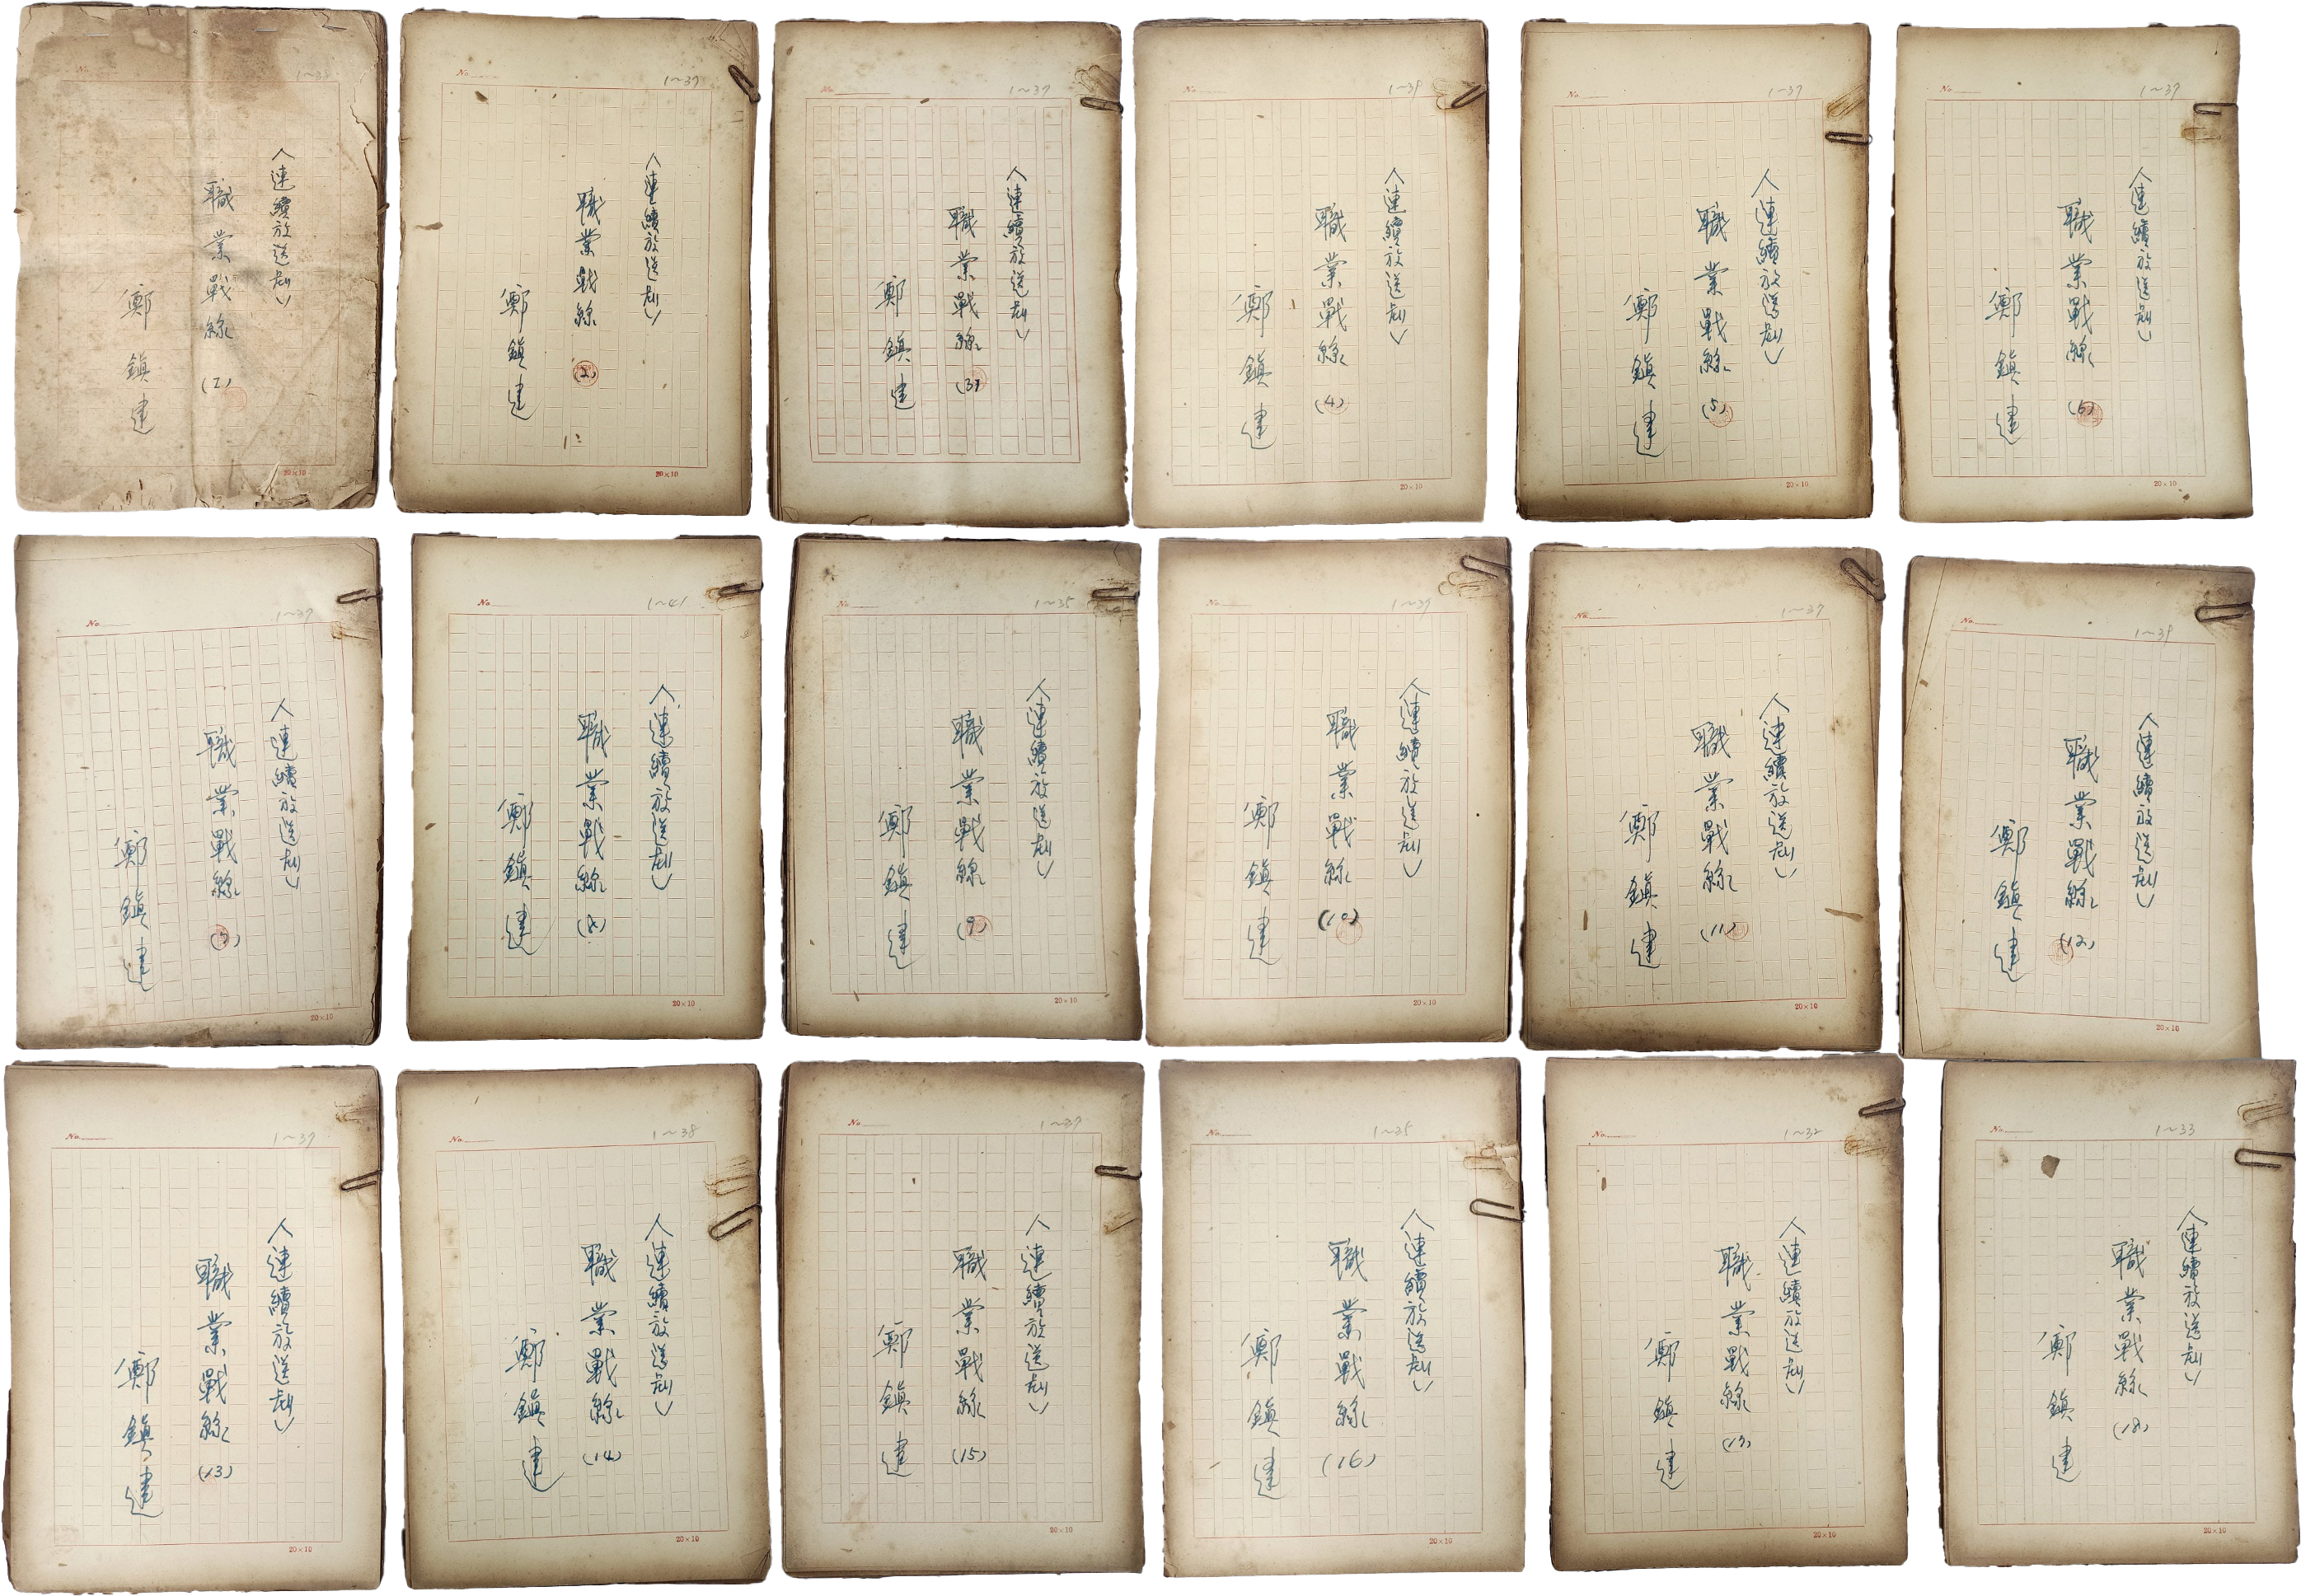 No.
〈連續放送劇〉
職業戰線 (1)
鄭鎮建
20×10
No.
1~37
〈連續放送劇〉
職業戰線 (2)
鄭鎮建
20×10
No.
1~37
〈連續放送劇〉
職業戰線 (3)
鄭鎮建
No.
1~39
〈連續放送劇〉
職業戰線 (4)
鄭鎮建
20×10
No.
1~37
〈連續放送劇〉
職業戰線 (5)
鄭鎮建
20×10
No.
1~37
〈連續放送劇〉
職業戰線 (6)
鄭鎮建
20×10
No.
1~37
〈連續放送劇〉
職業戰線 (7)
鄭鎮建
20×10
No.
1~41
〈連續放送劇〉
職業戰線 (8)
鄭鎮建
20×10
No.
1~35
〈連續放送劇〉
職業戰線 (9)
鄭鎮建
20×10
No.
1~37
〈連續放送劇〉
職業戰線 (10)
鄭鎮建
20×10
No.
1~37
〈連續放送劇〉
職業戰線 (11)
鄭鎮建
20×10
No.
1~39
〈連續放送劇〉
職業戰線 (12)
鄭鎮建
20×10
No.
1~37
〈連續放送劇〉
職業戰線 (13)
鄭鎮建
20×10
No.
1~38
〈連續放送劇〉
職業戰線 (14)
鄭鎮建
20×10
No.
1~37
〈連續放送劇〉
職業戰線 (15)
鄭鎮建
20×10
No.
1~35
〈連續放送劇〉
職業戰線 (16)
鄭鎮建
20×10
No.
1~32
〈連續放送劇〉
職業戰線 (17)
鄭鎮建
20×10
No.
1~33
〈連續放送劇〉
職業戰線 (18)
鄭鎮建
20×10